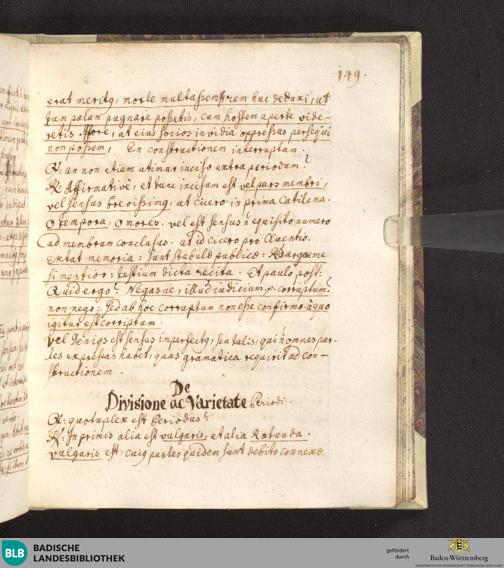 149.
erat meritq, morte multassem rem huc deduxi, ut
tum palam pugnare possetis, cum hostem aperte vide-
retis. Fore, ut eius socios invidia oppressus persequi
non possem, En constructionem interruptam.
Q: an non etiam utimur inciso extra periodum?
R: Affirmative, et tunc incisum est vel pars membri,
vel sensus brevissimq, ut Cicero in prima Catilena.
O tempora, O mores. vel est sensus ñ equisito numero
ad membrum conclusus. ut id Cicero pro Cluentio.
extat memoria: sunt tabulæ publicæ: Redargue me
si mentior: testium dicta recita. Et paulo post:
Quid ergo? Negasne, illud iudicium corruptum:
non nego: sed ab hoc corruptum non esse confirmo. à quo
igitur est corruptum.
vel deniqs est sensus imperfectq, seu talis, qui ñ omnes par-
tes expressas habet, quas gramatica requirit ad con-
structionem.
De
Divisione ac Varietate Periodi.
Q: quotuplex est Periodus?
R: In primis alia est vulgaris, et alia Rotunda.
vulgaris est, cuiq partes quidem sunt debito connexæ
BLB BADISCHE
LANDESBIBLIOTHEK
gefördert
durch
Baden-Württemberg